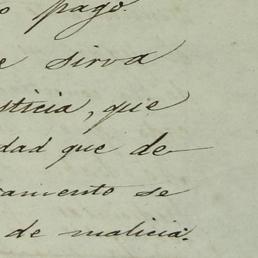 o pago.
e sirva
sticia, que
dad que de
amento se
de malicia.